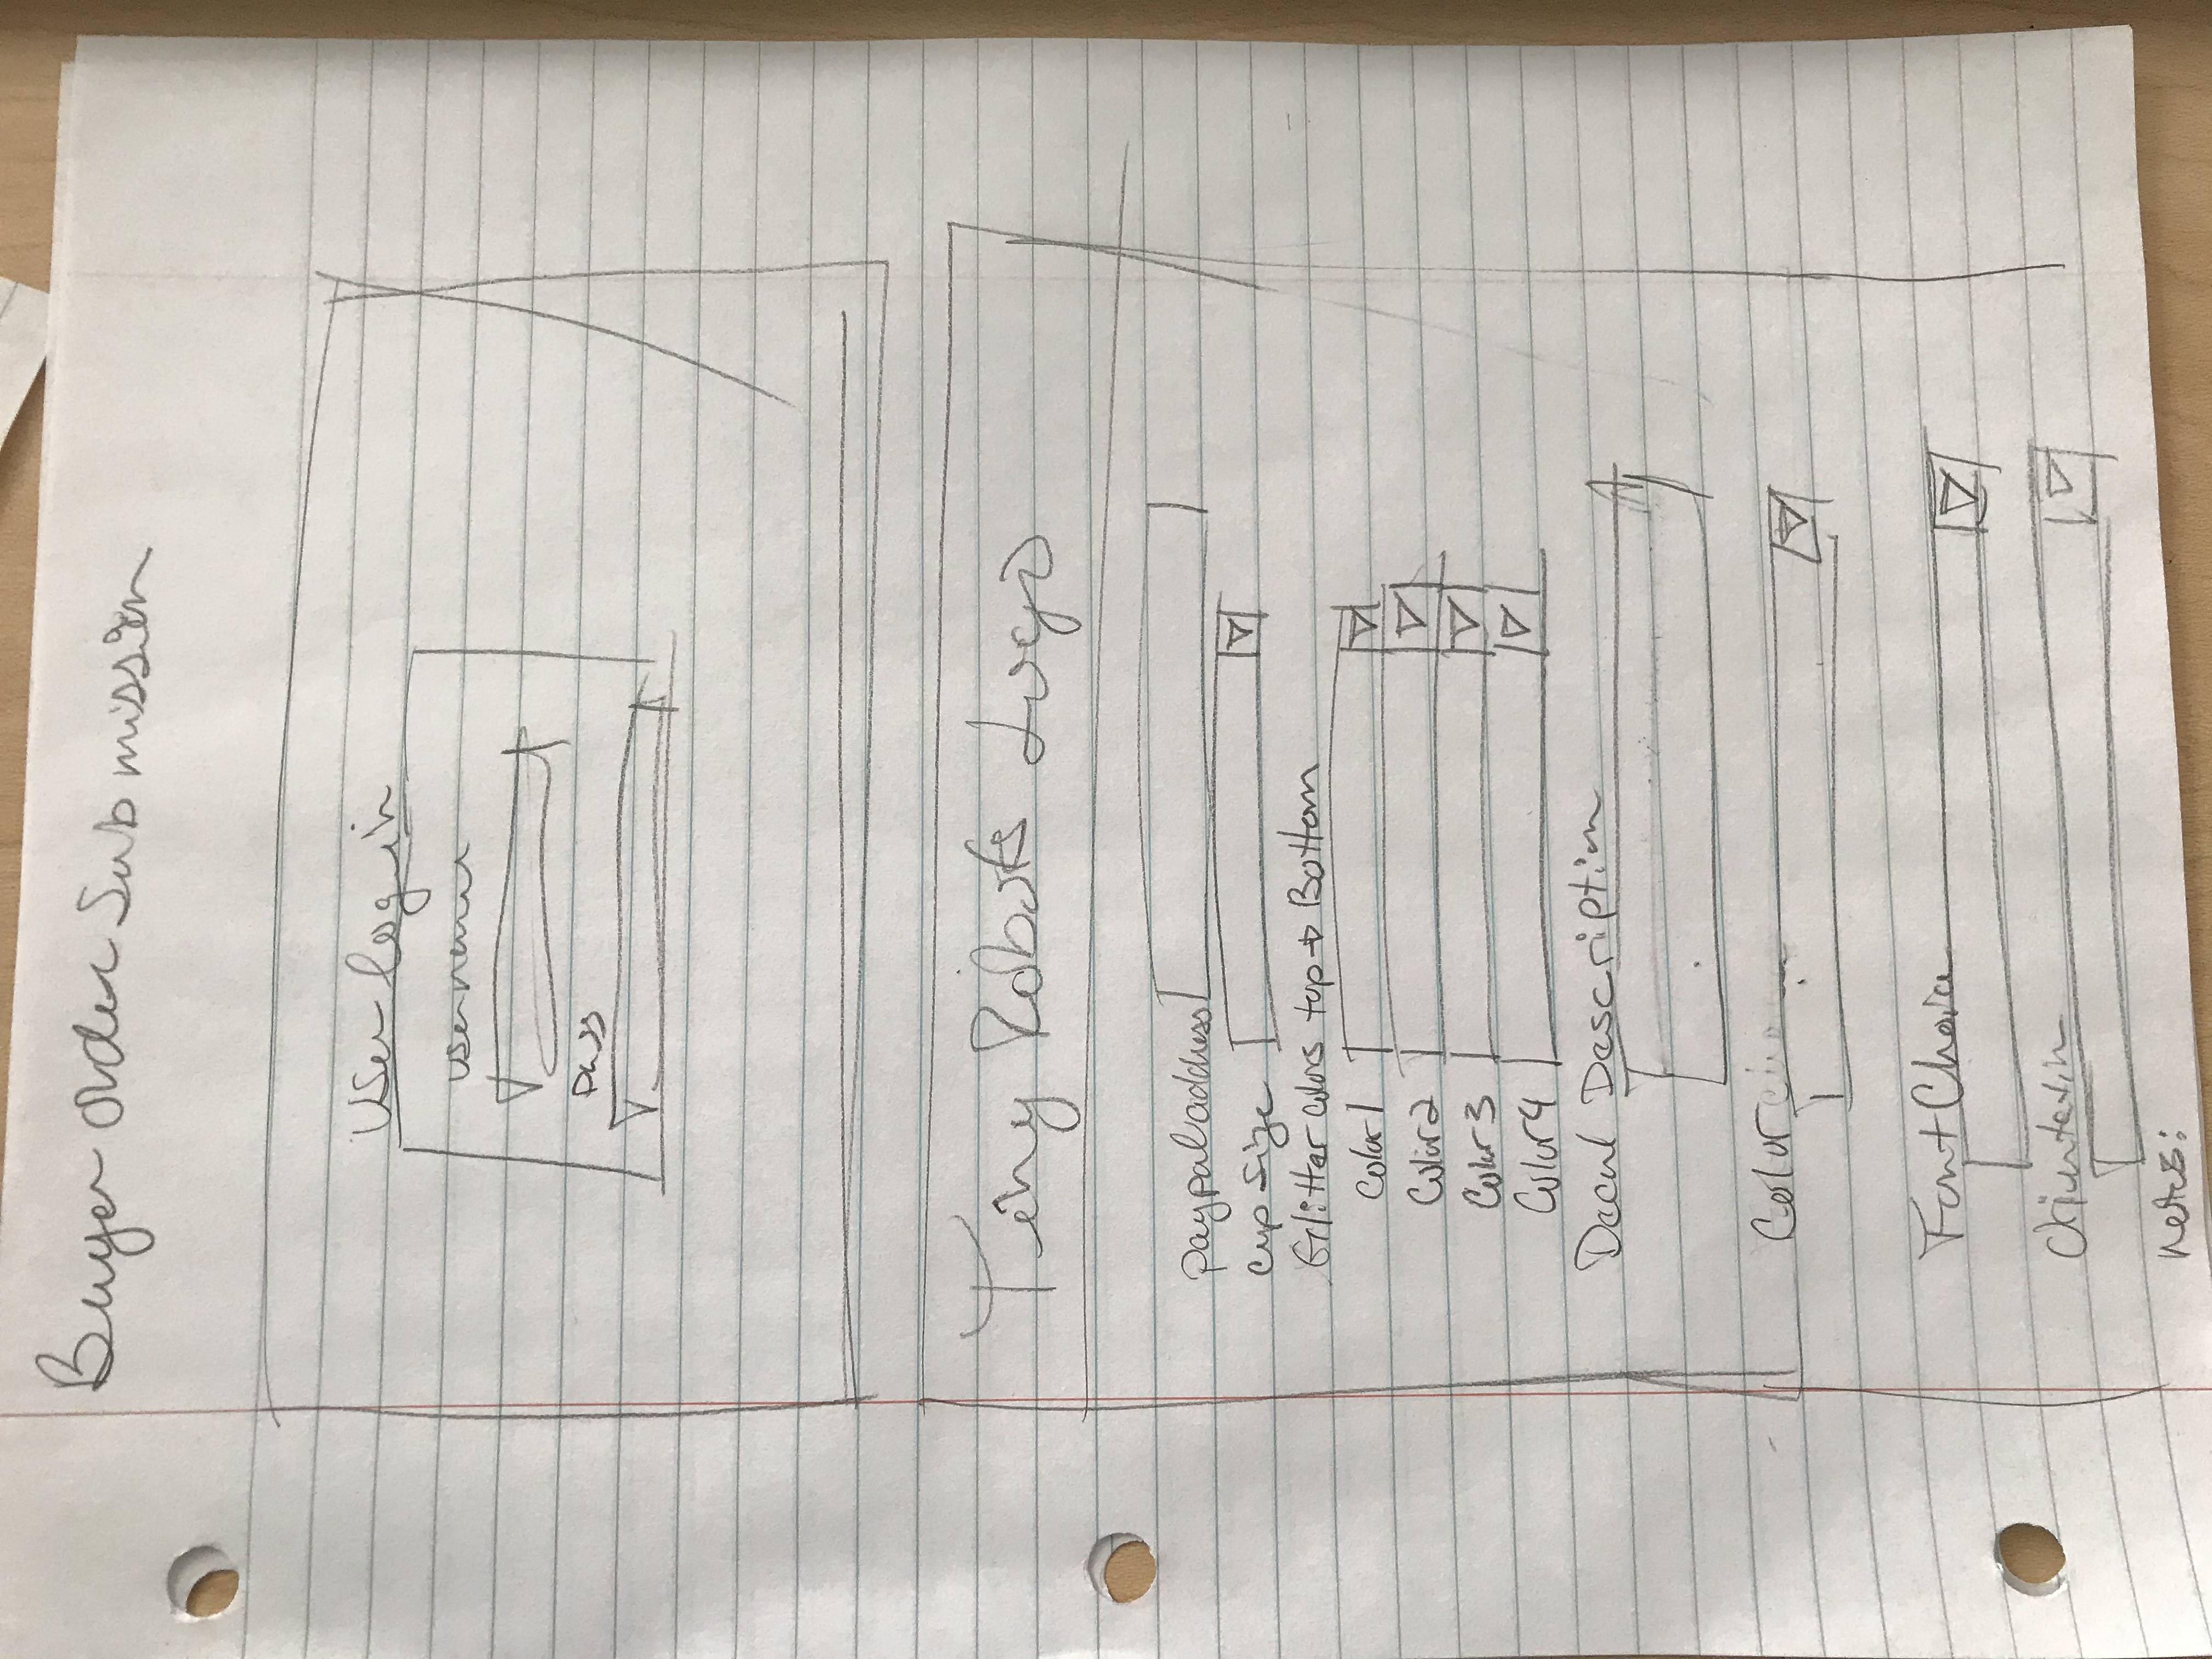 Buyer Order Submission
User login
username
Pass
Tiny Robots Logo
paypal address
cup size
Glitter colors top → Bottom
Color 1
Color 2
Color 3
Color 4
Decal Description
Color
Font Choice
Orientation
notes: